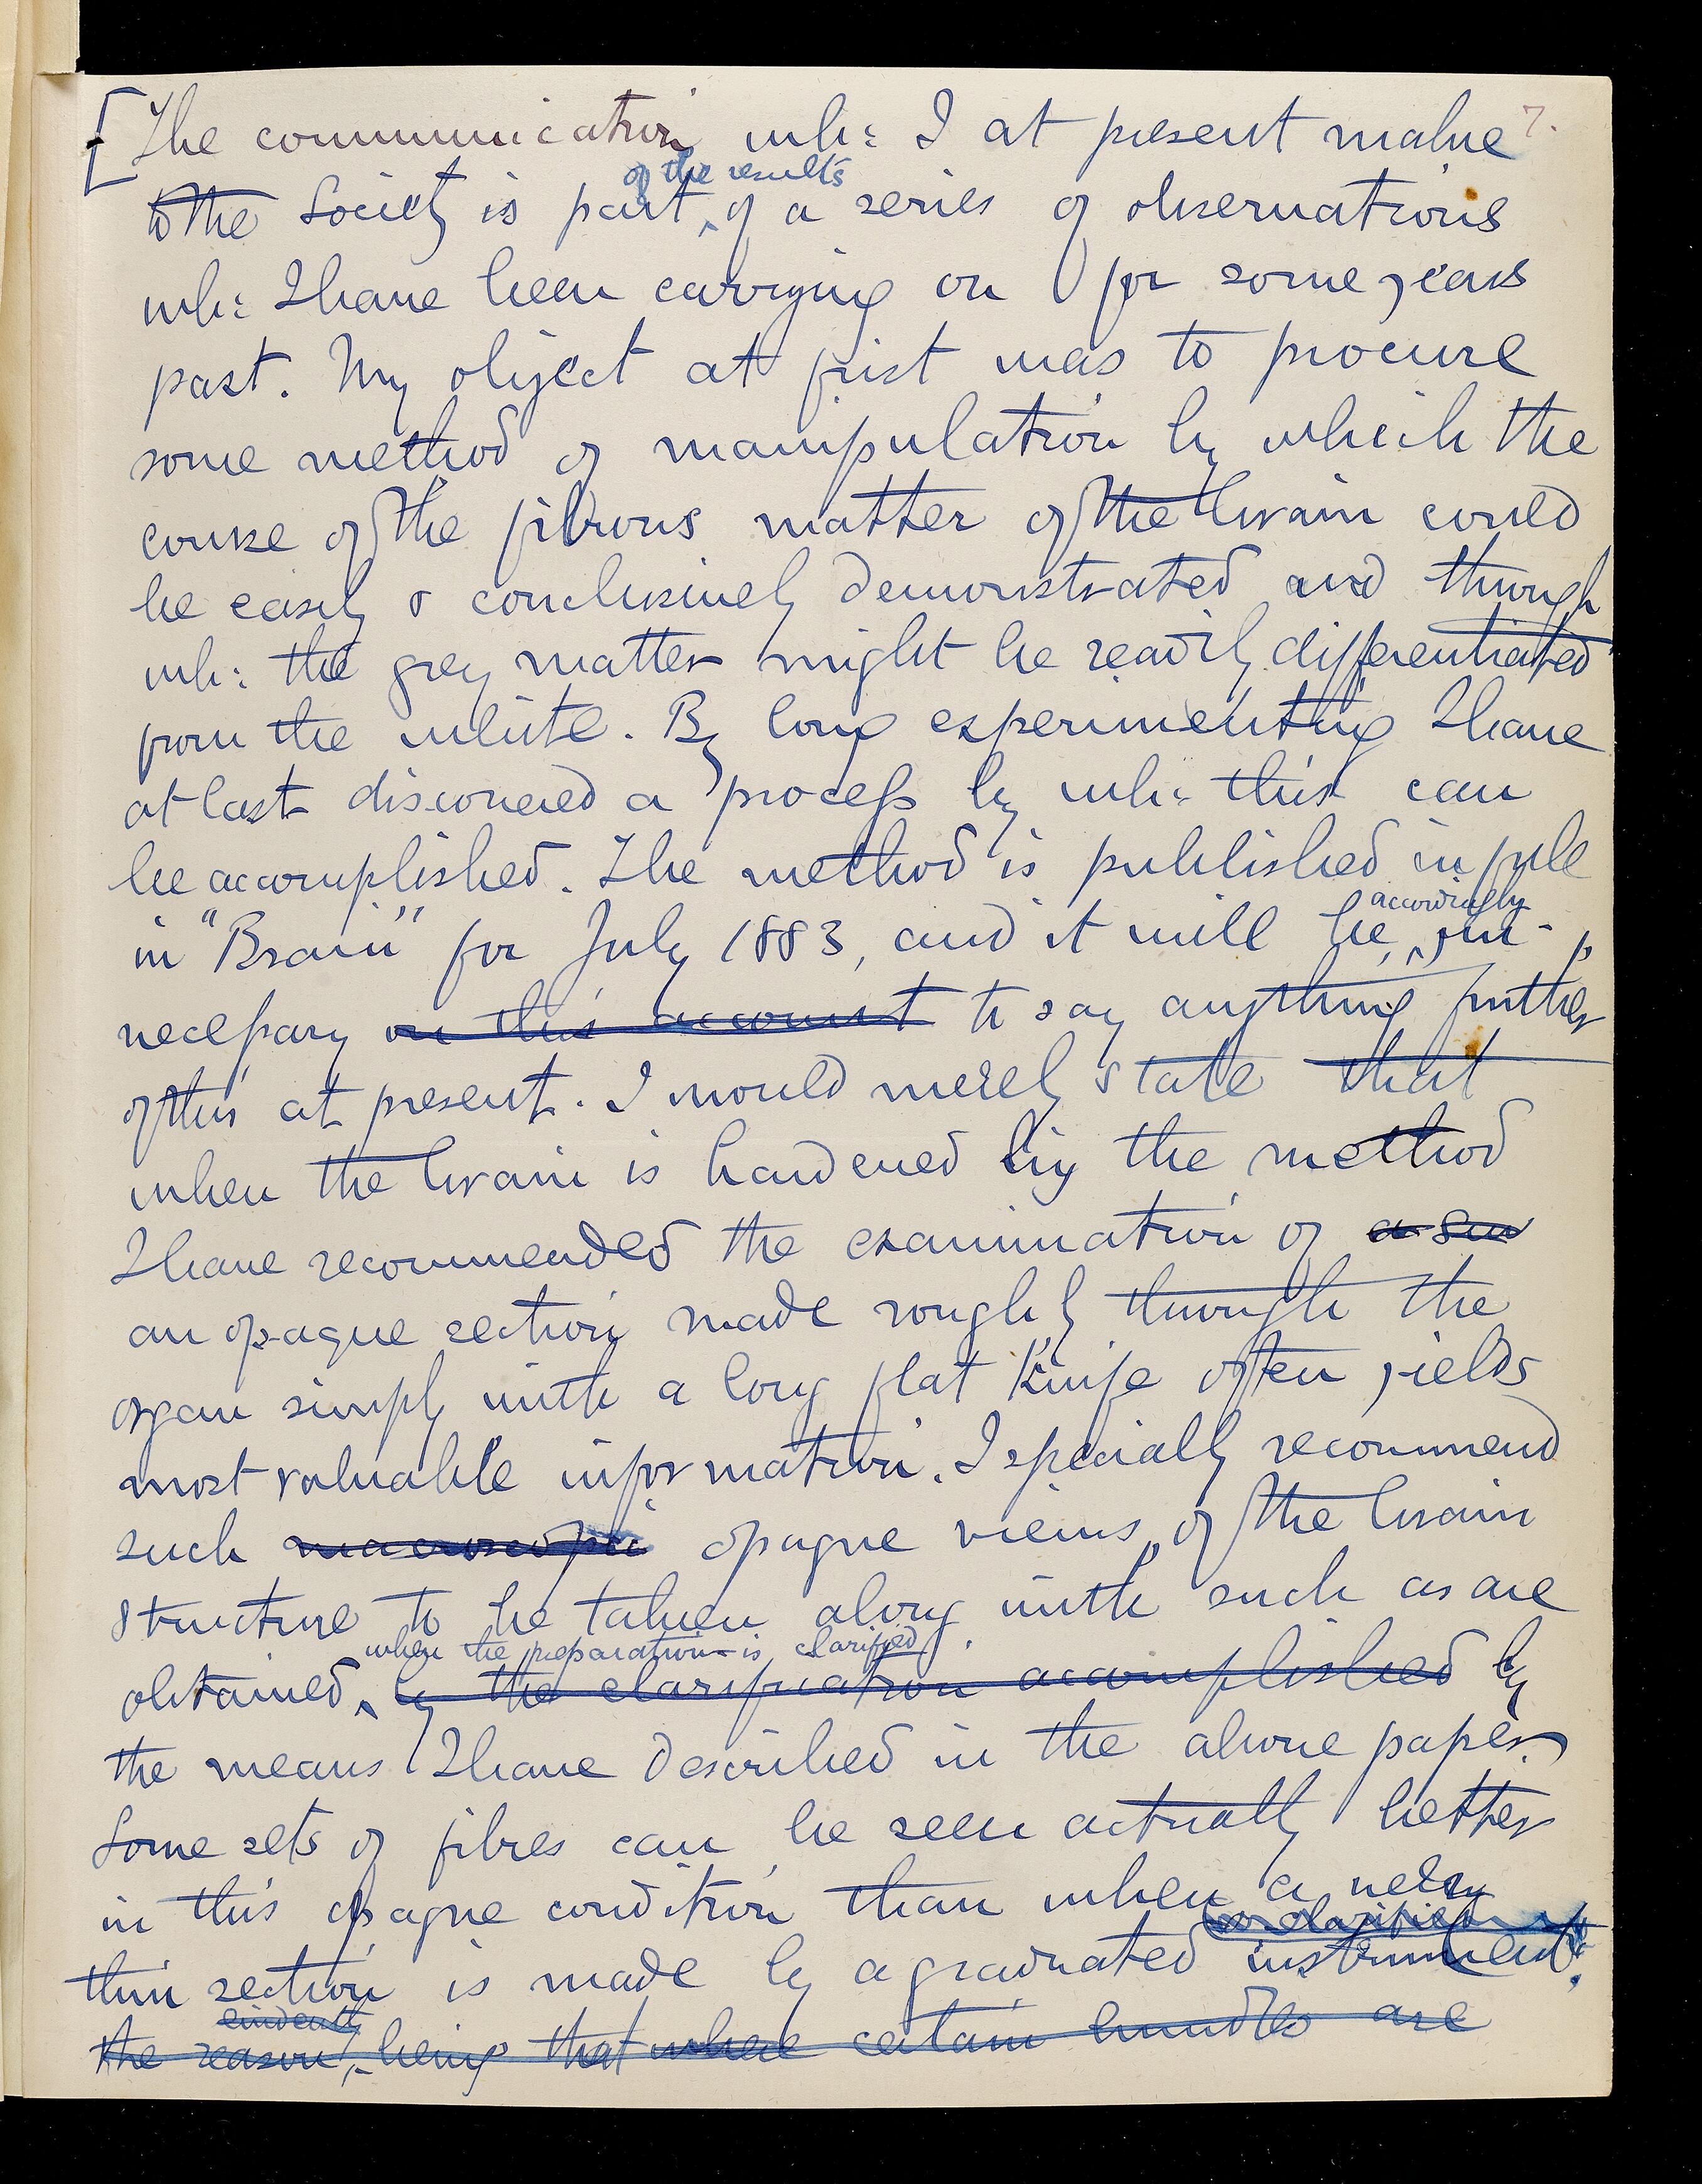 [The communication wh: I at present make 7.
to the Society is part of the results of a series of observations
wh: I have been carrying on for some years
past. My object at first was to procure
some method of manipulation by which the
course of the fibrous matter of the brain could
be easily & conclusively demonstrated and through
wh: the grey matter might be readily differentiated
from the white. By long experimenting I have
at last discovered a process by wh: this can
be accomplished. The method is published in full
in "Brain" for July 1883, and it will be, accordingly, un-
necessary on this account to say anything further
of this at present. I would merely state that
when the brain is hardened by the method
I have recommended the examination of a sec
an opaque section made roughly through the
organ simply with a long flat knife often yields
most valuable information. I specially recommend
such macroscopic opaque views of the brain
structure to be taken along with such as are
when the preparation is clarified
obtained by the clarification accomplished by
the means I have described in the above paper.
Some sets of fibres can be seen actually better
in this opaque condition than when a very
or clarified
thin section is made by a graduated instrument.
evidently
the reason, being that where certain bundles are